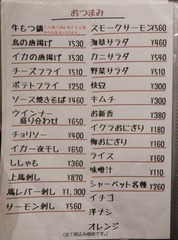 おつまみ
牛もつ鍋
鳥の唐揚げ ¥530
イカの唐揚げ ¥530
チーズフライ ¥510
ポテトフライ ¥250
ソース焼きそば ¥460
ウインナー
盛り合わせ ¥650
チョリソー ¥400
イカ一夜干し ¥650
ししゃも ¥360
上馬刺し ¥870
馬レバー刺し ¥1,300
サーモン刺し ¥560
スモークサーモン ¥560
海草サラダ ¥460
カニサラダ ¥540
野菜サラダ ¥510
枝豆 ¥300
キムチ ¥300
お新香 ¥380
イクラおにぎり ¥180
梅おにぎり ¥160
ライス ¥160
味噌汁 ¥110
シャーベット各種 ¥260
イチゴ
洋ナシ
オレンジ
(全て税込み価格です。)